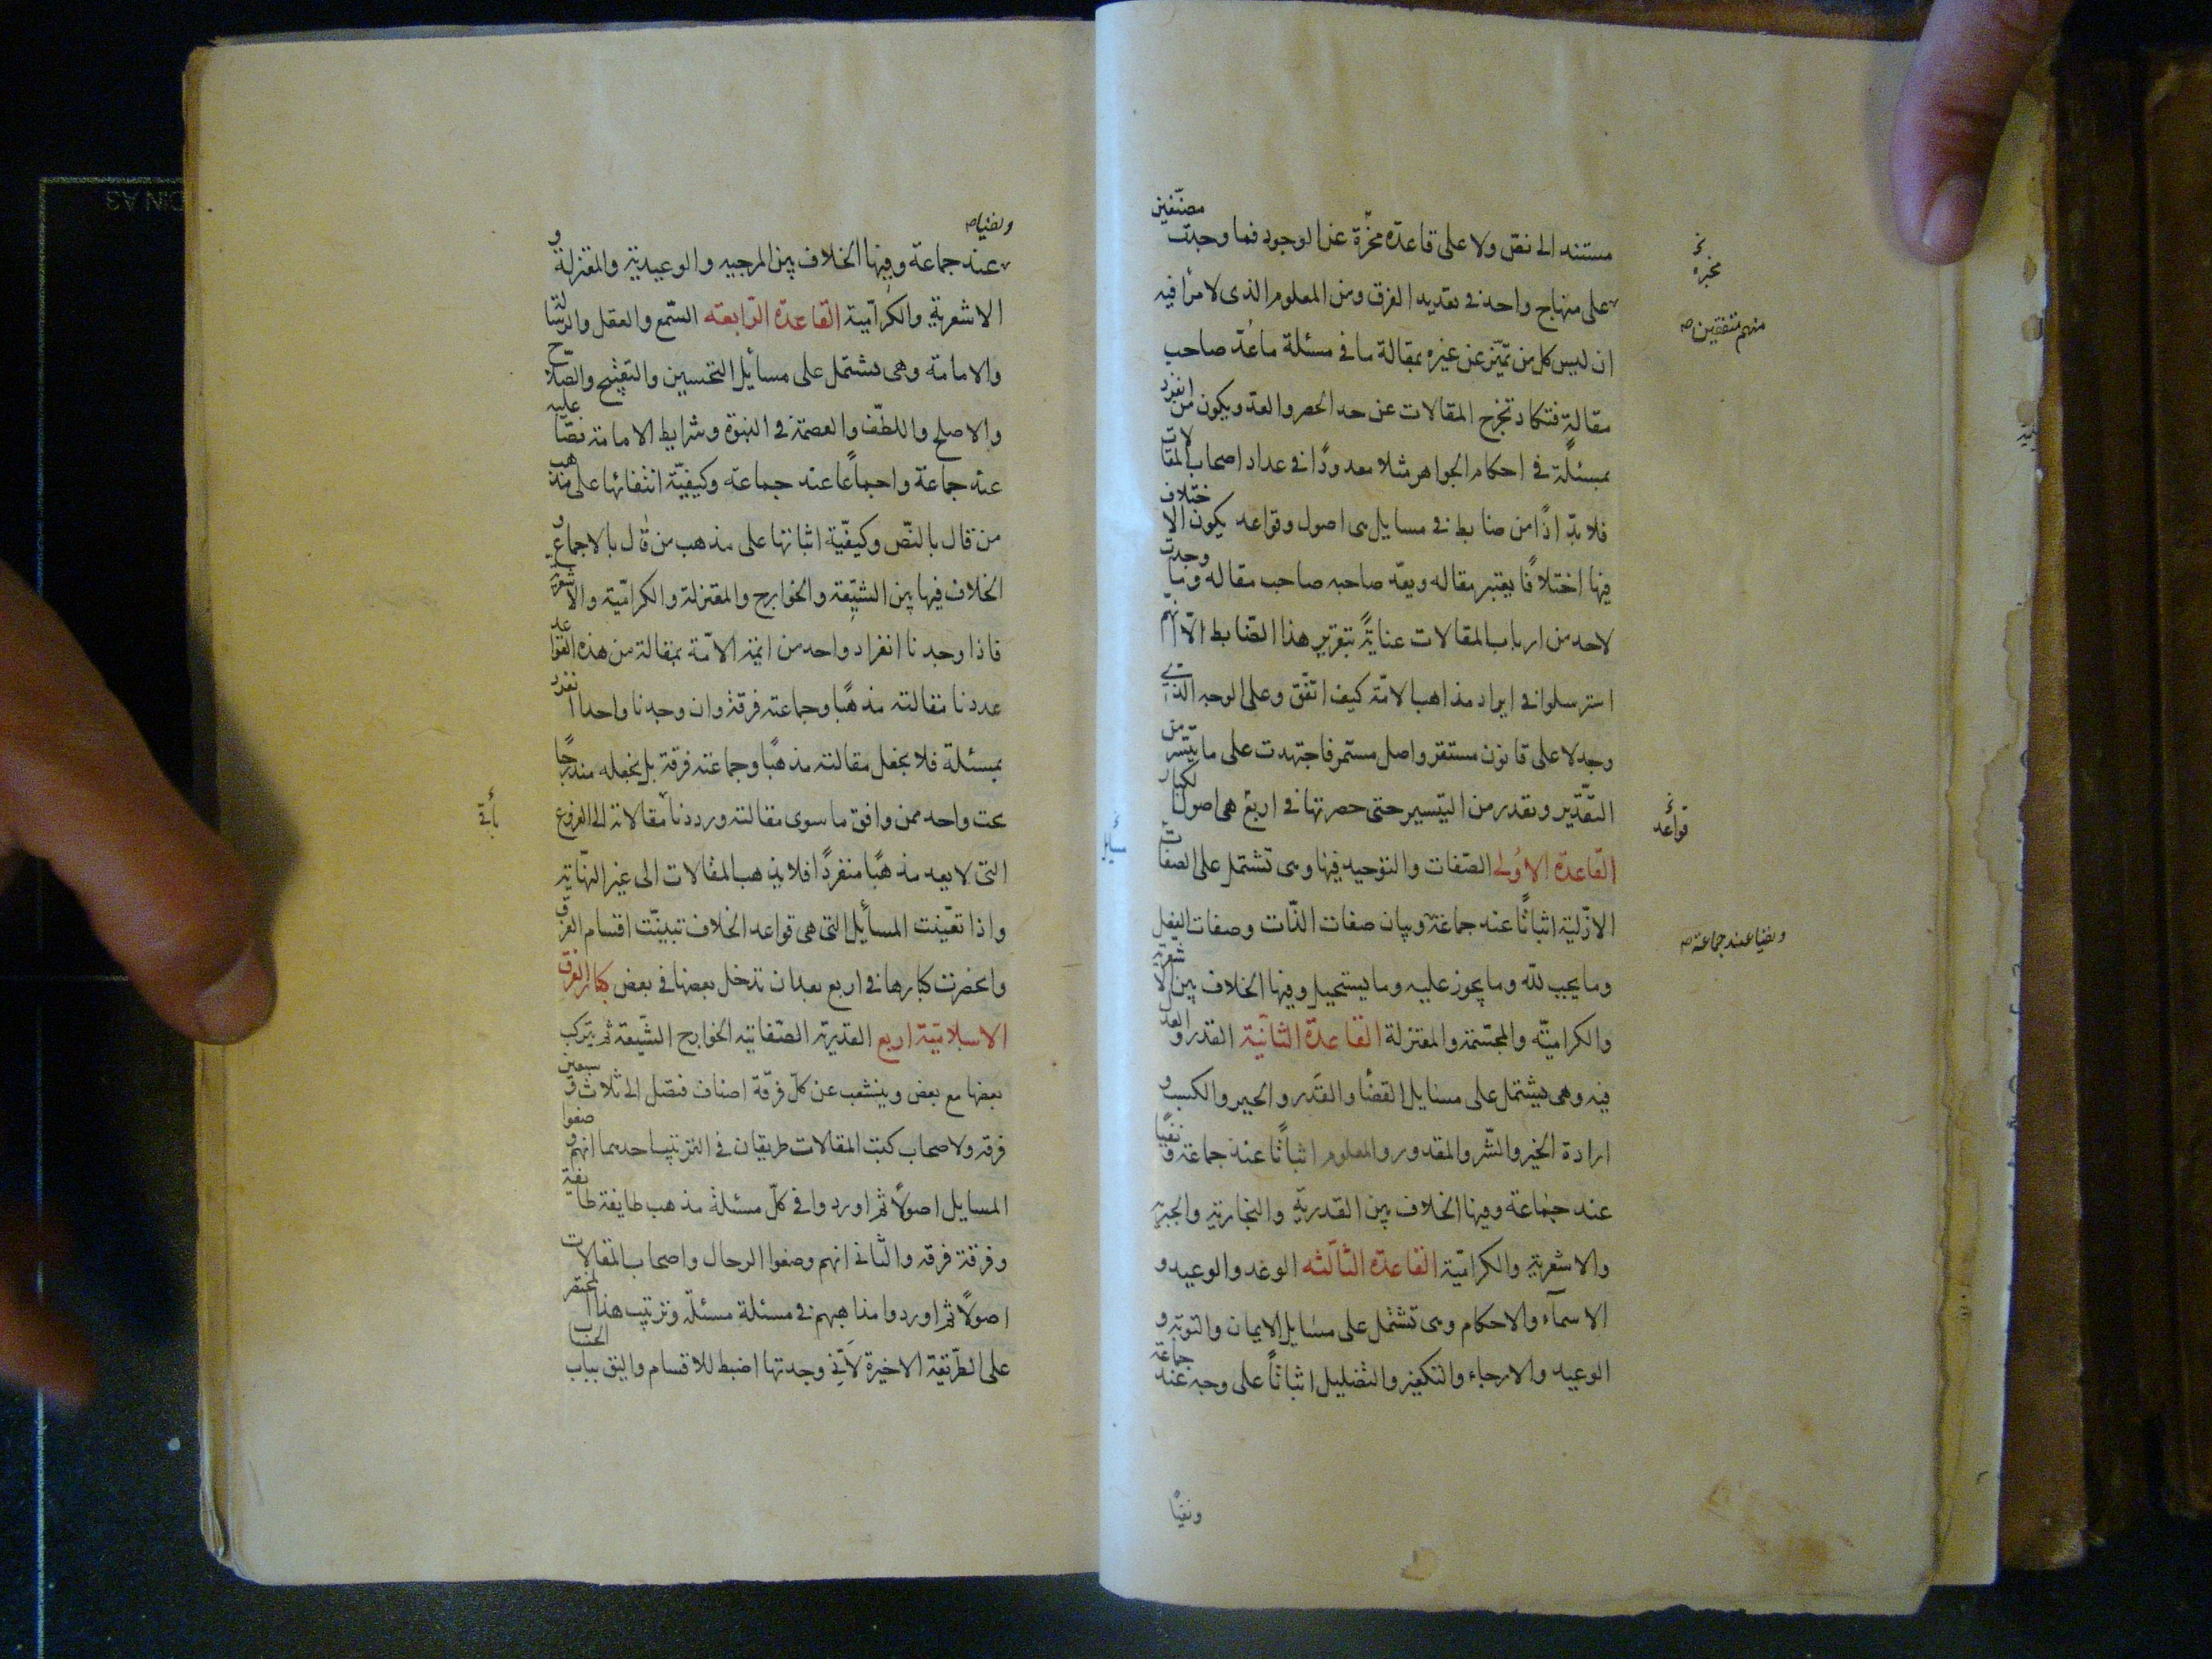 مستند الى نصّ ولا على قاعدة مخبرة عن الوجود فما وجدت مصنّفين
على منهاج واحد فى تعديد الفرق ومن المعلوم الذى لا مرأ فيه
ان ليس كل من تميّز عن غيره بمقالة ما فى مسئلة ما عُدّ صاحب
مقالة فتكاد تخرج المقالات عن حد الحصر والعدّ ويكون من انفرد
بمسئلة فى احكام الجواهر مثلا معدودًا فى عداد اصحاب المقالات
فلا بدّ اذًا من ضابط فى مسايل هى اصول وقواعد يكون الاختلاف
فيها اختلافًا يعتبر مقاله ويعدّ صاحبه صاحب مقاله وما وجدت
لاحد من ارباب المقالات عنايةً بتقرير هذا الضّابط الّا انهم
استرسلوا فى ايراد مذاهب الامّة كيف اتّفق وعلى الوجه الذى
وجد لا على قانون مستقر واصل مستمر فاجتهدت على ما تيّسر من
التقّدير وتقدر من التيسير حتى حصرتها فى اربع هى اصول الكبار
القّاعدة الاوُلى الصّفات والتوحيد فيها وهى تشتمل على الصفات
الازّلية اثباتًا عند جماعة وبيان صفات الذّات وصفات الفعل
وما يجب للّه وما يجوز عليه وما يستحيل وفيها الخلاف بين الاشعرية
والكراميّه والمجسّمة والمعتزلة القاعدّة الثانّية القدر والعدل
فيه وهى تشتمل على مسايل القضأ والقَدر والجبر والكسب و
ارادة الخير والشّر والمقدور والمعلوم اثباتًا عند جماعة ونفيًا
عند جماعة وفيها الخلاف بين القدريّة والنجارية والجبرية
والاشعرية والكراميّة القاعدة الثالثه الوعد والوعيد و
الاسمآء والاحكام وهى تشتمل على مسَايل الايمان والتوبة و
الوعيد والارجاء والتكفير والتضليل اثباتاً على وجه عند جماعة
ونفيًا
مخبره
منهم متفقين صح
قواعد
ونفيا عند جماعة صح
ونفيا صح
عند جماعة وفيها الخلاف بين المرجيه والوعيدية والمعتزلة و
الاشعرية والكرّامية القاعدة الرّابعه السّمع والعقل والرسالة
والامامة وهى تشتمل على مسأيل التحسين والتقبيح والصّلاح
والاصلح واللطّف والعصمة فى النبوة وشرايط الامامة نصّا عليه
عند جماعة واجماعًا عند جماعة وكيفيّة انتفائها على مذهب
من قال بالنصّ وكيفّية اثباتها على مذهب من قال بالاجماع و
الخلاف فيها بين الشيّعة والخوارج والمعتزلة والكرامّية والاشعرية
فاذا وجدنا انفراد واحد من ائمة الامّة بمقالة من هذه القواعد
عددنا مقالته مذهبًا وجماعته فرقة وان وجدنا واحدا انفرد
بمسئلة فلا يجعل مقالته مذهبًا وجماعته فرقة بل يجعله مندرجًا
تحت واحد ممن وافق ما سوى مقالته ورددنا مقالاته الى الفروع
التى لا يعد مذهبًا منفردًا فلا يذهب المقالات الى غير النهّاية
واذا تعيّنت المسأيل التى هى قواعد الخلاف تبينّت اقسام الفرق
وانحصرت كبارها فى اربع بعد ان تدخل بعضها فى بعض كبار الفرق
الاسلاميّة اربع القدرية الصّفاتيه الخوارج الشّيعة ثم يتركب
بعضها مع بعض وينشعب عن كلّ فرقة اصناف فتصل الى ثلاث وسبعين
فرقه ولاصحاب كتب المقالات طريقان فى الترتيب احديهما انهم وضعوا
المسايل اصولًا ثم اوردوا فى كلّ مسئلة مذهب طايفة طايفة
وفرقة فرقه والثّانى انهم وضعوا الرجال واصحاب المقالات
اصولًا ثم اوردوا مذاهبهم فى مسئلة مسئلة وترتيب هذا المختصر
على الطّريقة الاخيرة لاَنّى وجدتها اضبط للاقسام واليق بباب الحساب